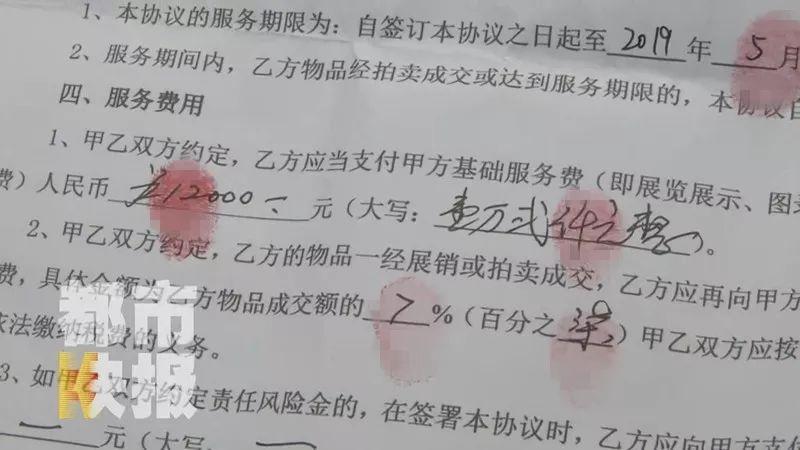 1、本协议的服务期限为：自签订本协议之日起至 2019 年 5 月
2、服务期间内，乙方物品经拍卖成交或达到服务期限的，本协议自
四、服务费用
1、甲乙双方约定，乙方应当支付甲方基础服务费（即展览展示、图录
费）人民币 12000 元（大写：壹万贰仟元整）。
2、甲乙双方约定，乙方的物品一经展销或拍卖成交，乙方应再向甲方
费，具体金额为乙方物品成交额的 7 %（百分之柒）甲乙双方应按
依法缴纳税费的义务。
3、如甲乙双方约定责任风险金的，在签署本协议时，乙方应向甲方支付
元（大写：
都市快报